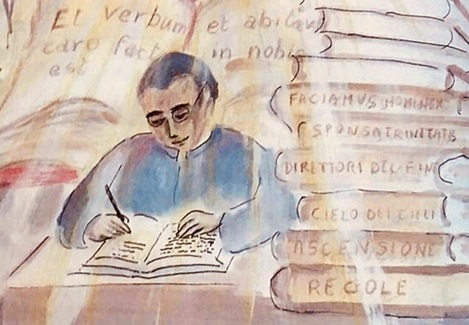 Et verbum et abitav
caro fact in nobis
est
FACIAMUS HOMINEM
SPONSA TRINITATIS
DIRETTORI DEL FINE
CIELO DEI CIELI
ASCENSIONE
REGOLE